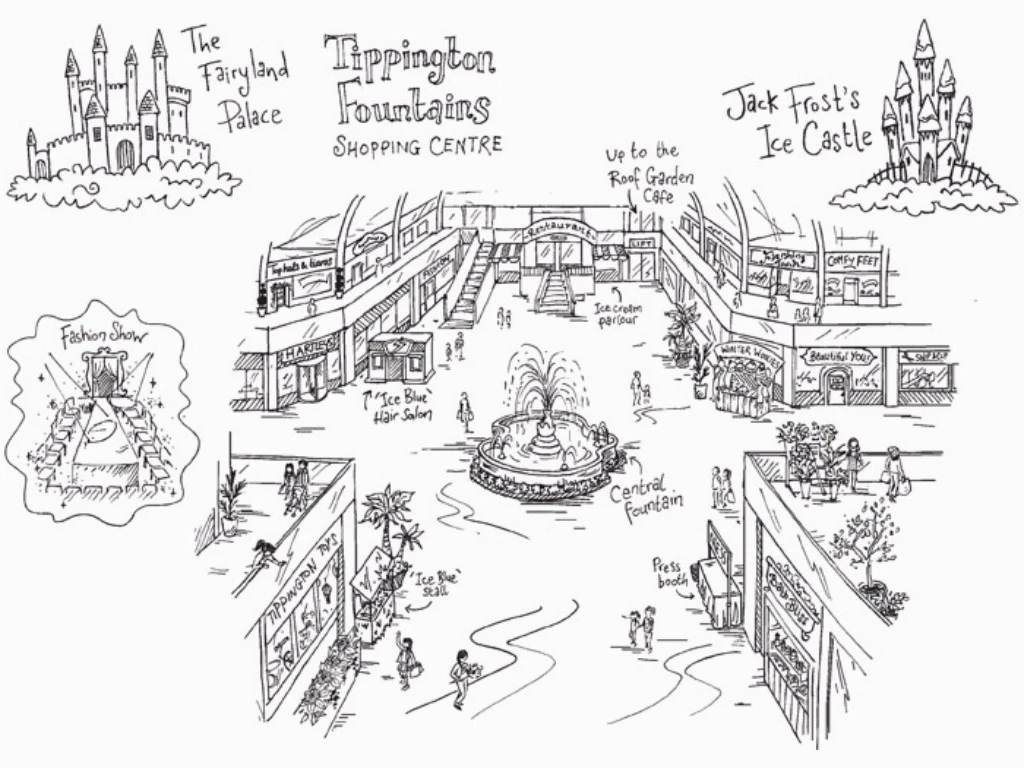 The
Fairyland
Palace
Tippington
Fountains
SHOPPING CENTRE
Jack Frost's
Ice Castle
Up to the
Roof Garden
Cafe
Restaurant
LIFT
Top hats & tiaras
COMFY FEET
Ice cream
parlour
Fashion Show
HARTLEYS
WINTER WOOLIES
Beautiful You!
'Ice Blue'
Hair Salon
Central
fountain
TIPPINGTON TOYS
'Ice Blue'
stall
Press
booth